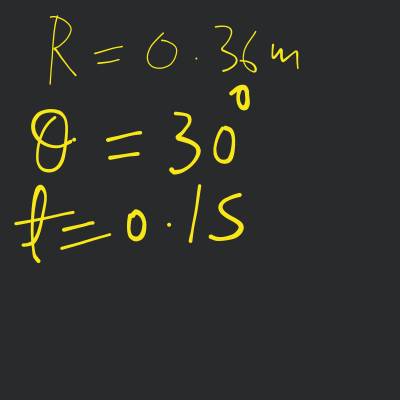 R = 0.36m
θ = 30°
t = 0.1s